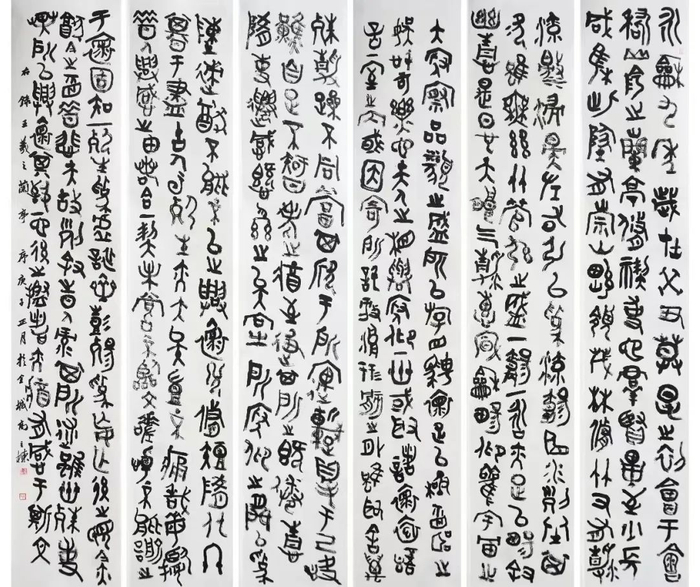 永龢九年歲在癸丑莫春之初會于會
稽山陰之蘭亭脩禊事也羣賢畢至少長
咸集此地有崇山峻領茂林脩竹又有清
流激湍暎帶左右引以為流觴曲水列坐其
次雖無絲竹管弦之盛一觴一詠亦足以暢敘
幽情是日也天朗氣清惠風龢暢仰觀宇宙之
大俯察品類之盛所以遊目騁懷足以極視聽之
娛信可樂也夫人之相與俯仰一世或取諸懷抱悟言
一室之內或因寄所託放浪形骸之外雖趣舍萬
殊靜躁不同當其欣于所遇暫得于己快
然自足不知老之將至及其所之既倦情
隨事遷感慨係之矣向之所欣俛仰之間以為
陳迹猶不能不以之興懷況脩短隨化終
期于盡古人云死生亦大矣豈不痛哉每攬
昔人興感之由若合一契未嘗不臨文嗟悼不能喻
于懷固知一死生為虛誕齊彭殤為妄作後之視今亦
猶今之視昔悲夫故列敘時人錄其所述雖世殊事
異所以興懷其致一也後之攬者亦將有感于斯文
右錄王羲之蘭亭序庚子正月於金城